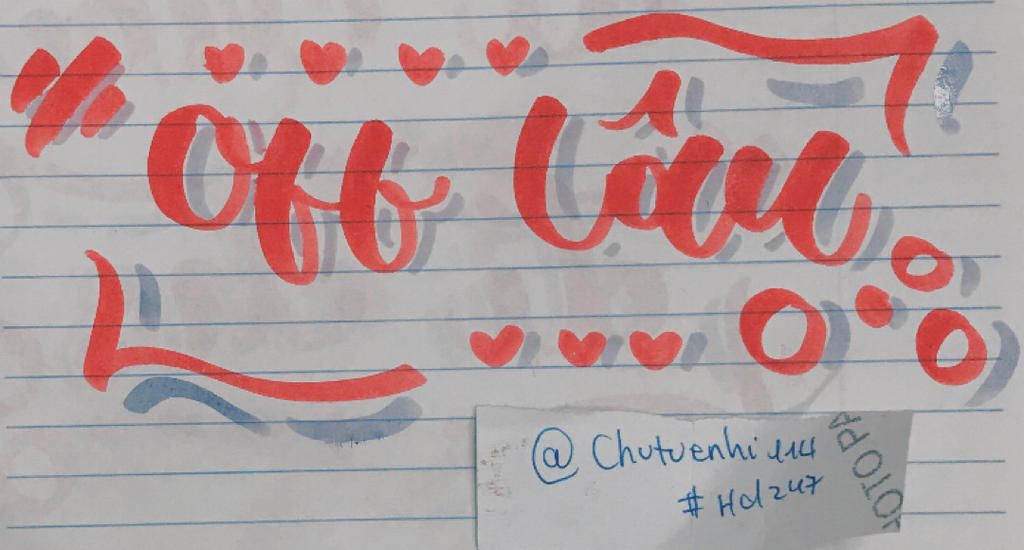 Off lâu
@Chutuenhi114
#Hd247
OTOPA